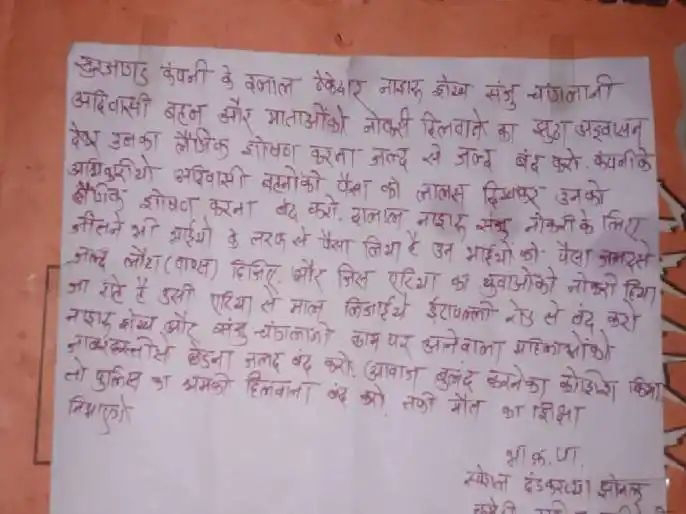 सुरजागड कंपनी के दलाल ठेकेदार नाहीद शेख संजु चंगलानी
आदिवासी बहन और माताओंको नोकरी दिलवाने का झुठा आश्वासन
देकर उनका लैंगिक शोषण करना जल्द से जल्द बंद करो. कंपनीके
अधिकारीयो आदिवासी बहनोंको पैसा की लालस दिखाकर उनको
लैंगिक शोषण करना बंद करो. दलाल संजु नोकरी के लिए
जीतने भी भाईयो के तरफ से पैसा लिया है उन भाईयो को पैसा
जल्द लौटा (वापस) दिजिए. और जिस एरिया का युवाओंको नोकरी दिया
जा रहे है उसी एरिया से माल रोड से बंद करो
शेख और संजु चंगलानी काम पर आनेवाला महिलाओंको
छेडना जल्द बंद करो. आवाज बुलंद करनेका कोशिश किया
तो पुलिस का धमकी दिलवाना बंद करो. मौत का
भा.क.पा.
स्पेशल